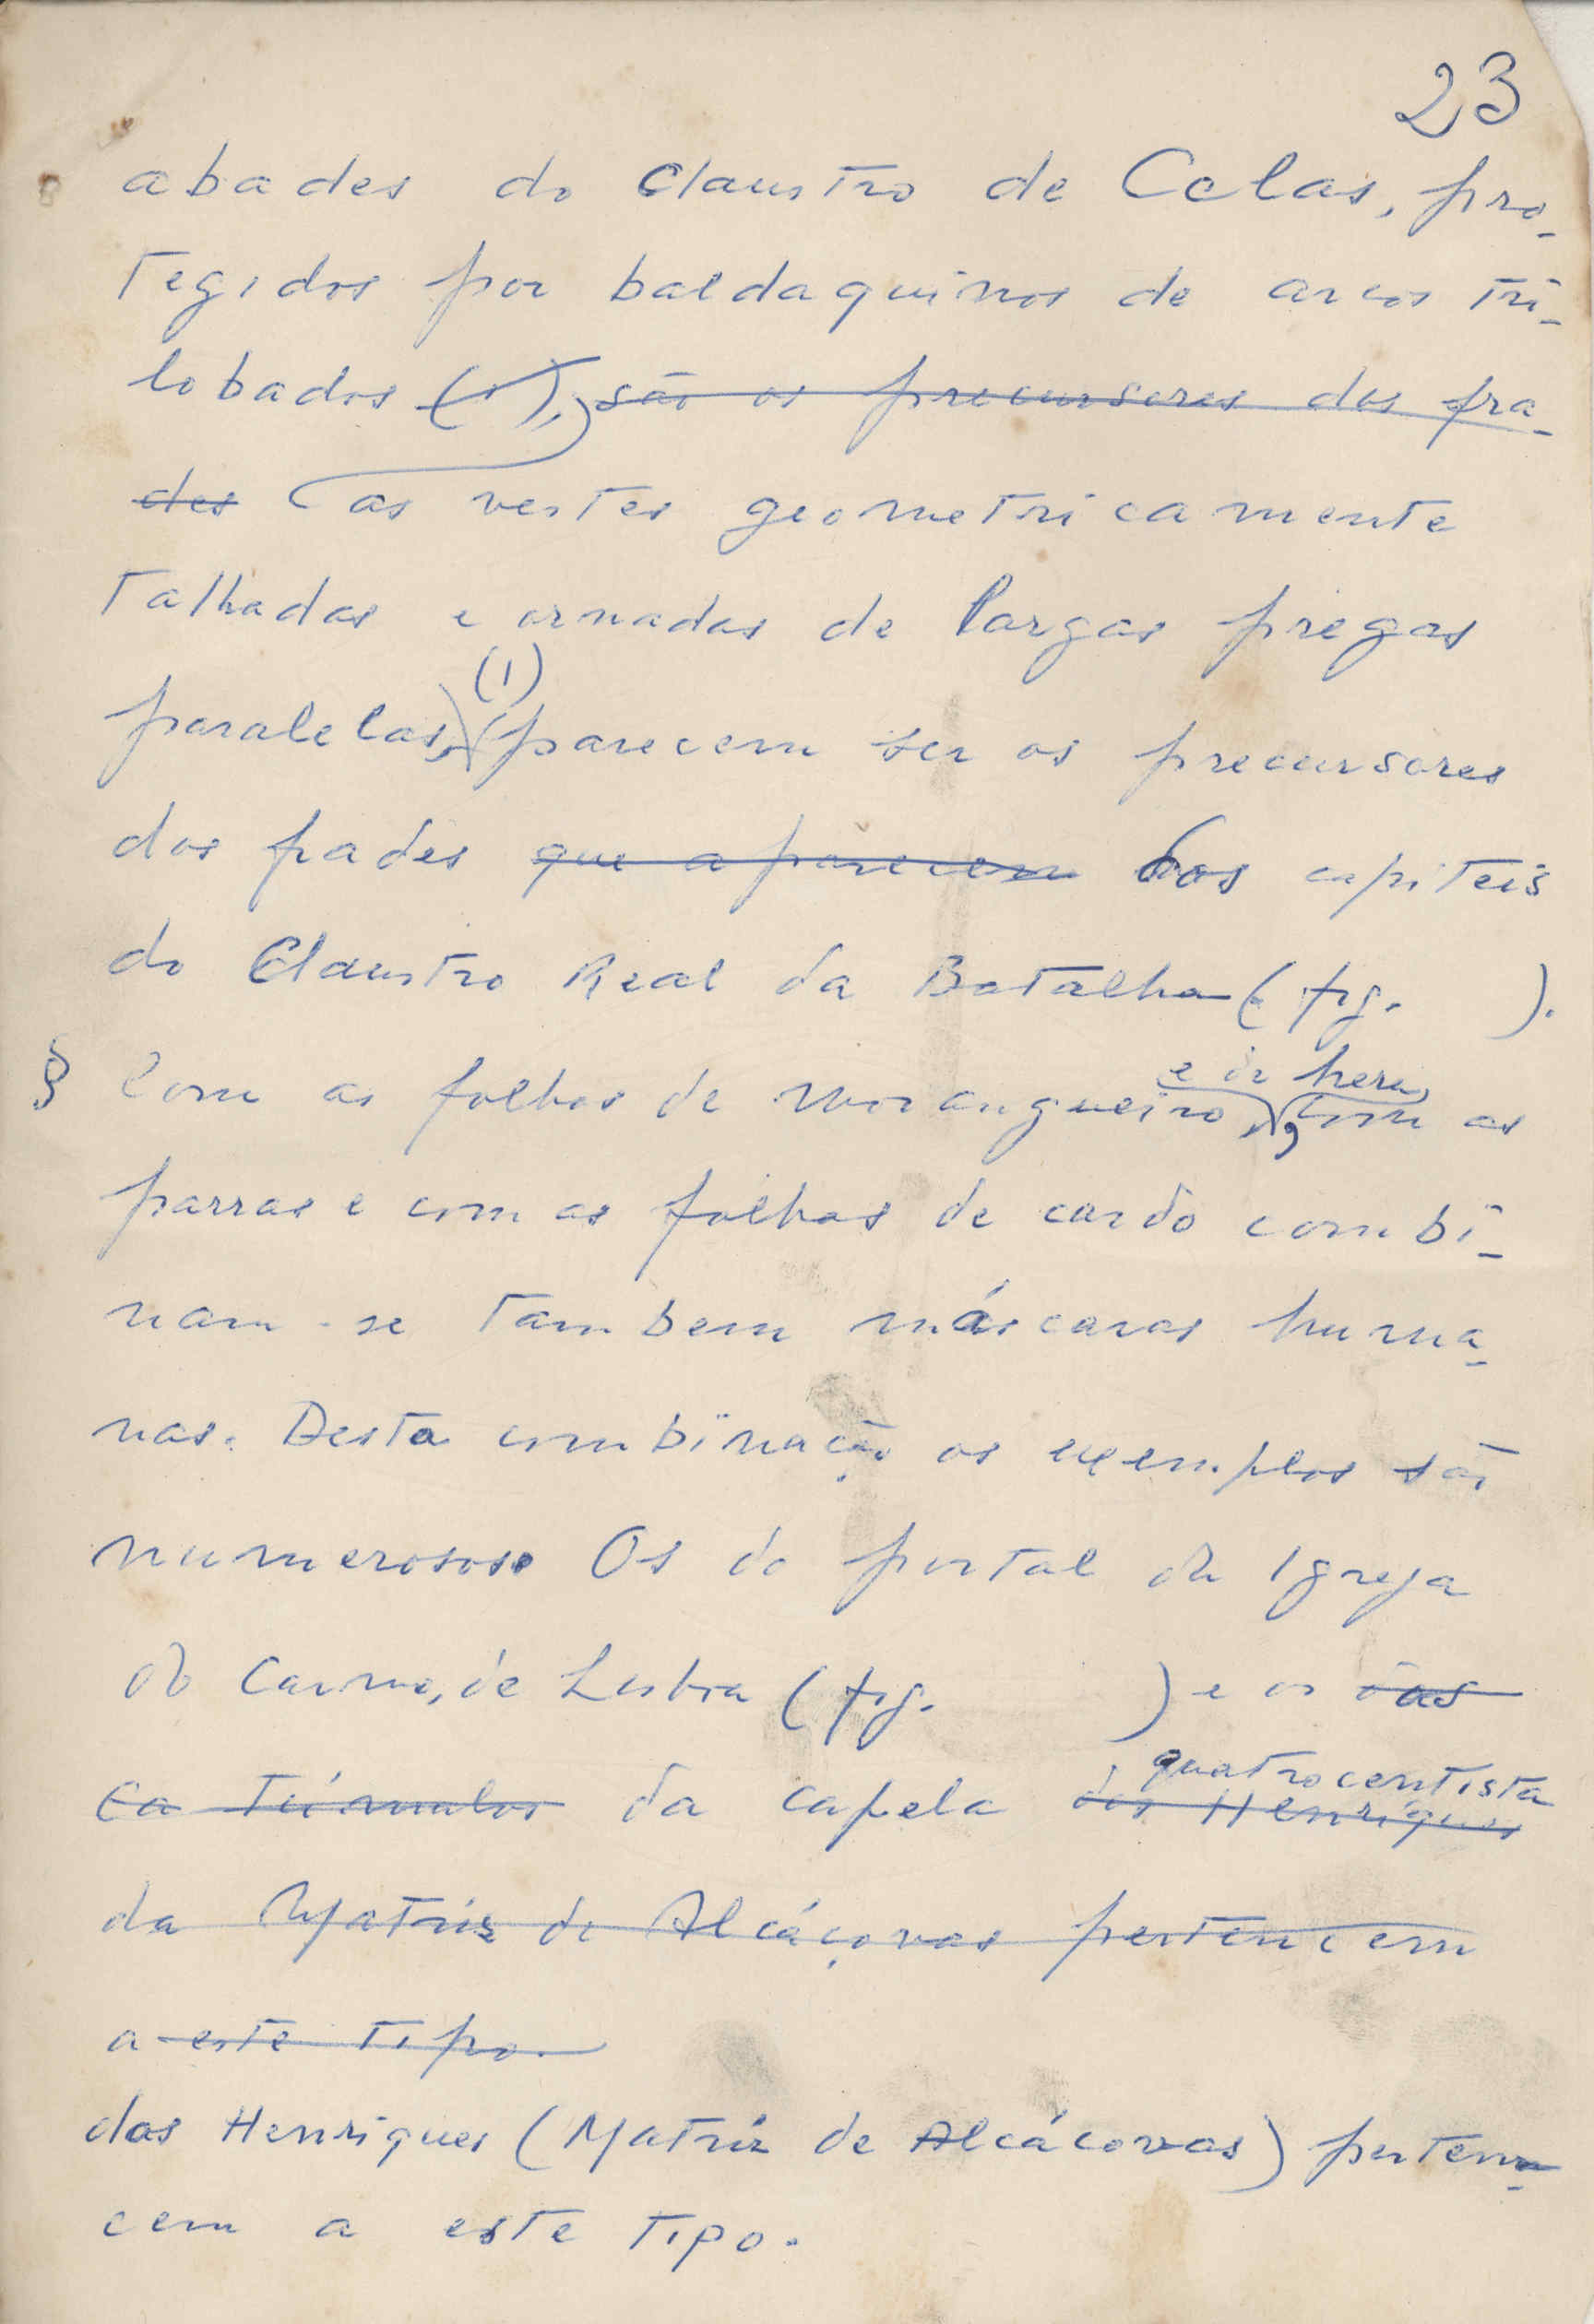 23
abades do Claustro de Celas, pro-
tegidos por baldaquinos de arcos tri-
lobados (1), são os precursores dos fra-
des as vestes geometricamente
talhadas e ornadas de largas pregas
(1)
paralelas, parecem ser os precursores
dos frades que aparecem nos capiteis
do Claustro Real da Batalha (fig. ).
e de hera
§ Com as folhas de morangueiro, com as
parras e com as folhas de cardo combi-
nam-se tambem máscaras huma-
nas. Desta combinação os exemplos são
numerosos. Os do portal da Igreja
do Carmo, de Lisboa (fig. ) e os das
quatrocentista
túmulos da capela dos Henriques
da Matriz de Alcáçovas pertencem
a este tipo.
dos Henriques (Matriz de Alcácovas) perten-
cem a este tipo.